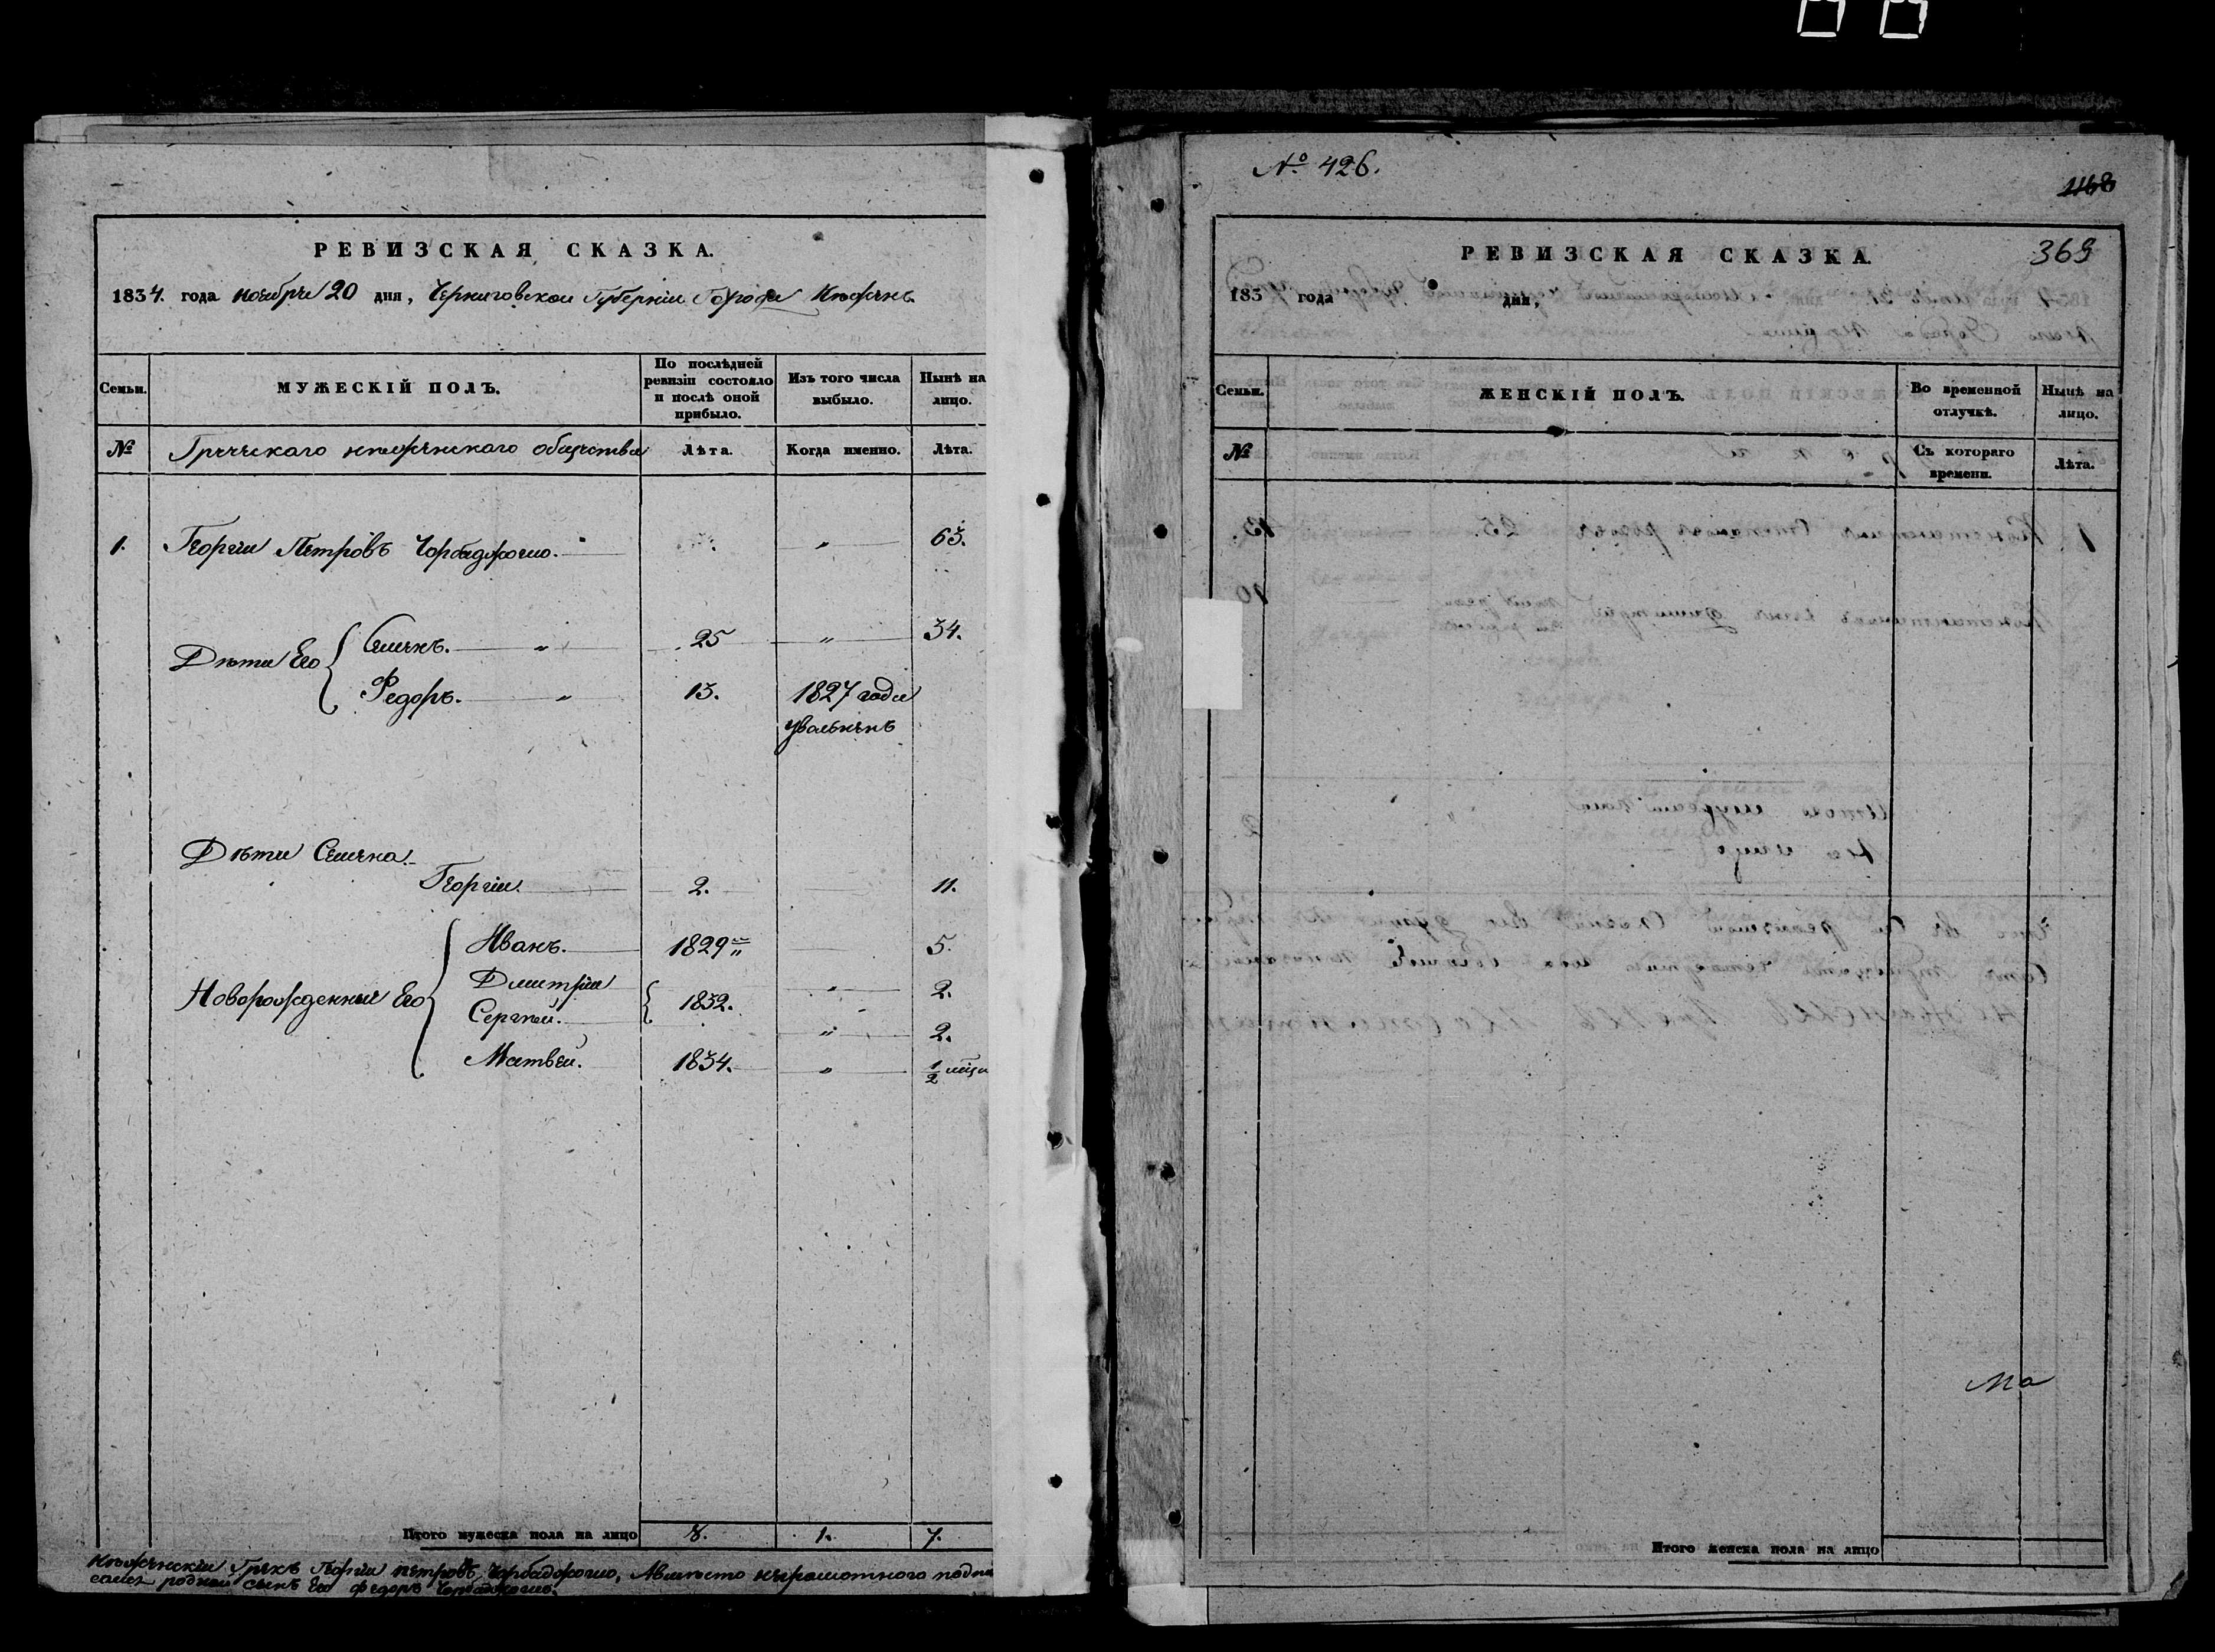 РЕВИЗСКАЯ СКАЗКА.
1834. года ноября 20 дня, Черниговской Губернии Города Нѣжина
Семьи.
МУЖЕСКІЙ ПОЛЪ.
По послѣдней ревизіи состояло и послѣ оной прибыло.
Изъ того числа выбыло.
Нынѣ на лицо.
№
Греческого нѣжинского общества
Лѣта.
Когда именно.
Лѣта.
1. Георгій Петровъ Чорбаджогло. „ 63.
Дѣти Его
Семенъ. „ 25 „ 34.
Федоръ. „ 13. 1827 года
уволенъ
Дѣти Семена.
Георгій. 2. 11.
Новорожденные Его
Иванъ. 1829 5.
Дмитрій 1832. „ 2.
Сергѣй. „ 2.
Матвей. 1834. „ 1/2 мѣся
Итого мужеска пола на лицо 8. 1. 7.
Нѣжинскій Грекъ Георгій петровъ Чорбаджогло, Авместо неграмотного подпи
родной сынъ Его федоръ Чорбаджогло.
№ 426.
1168
369
РЕВИЗСКАЯ СКАЗКА.
183 года дня,
Семьи.
ЖЕНСКІЙ ПОЛЪ.
Во временной отлучкѣ.
Нынѣ на лицо.
№
Съ котораго времени.
Лѣта.
Ма
Итого женска пола на лицо